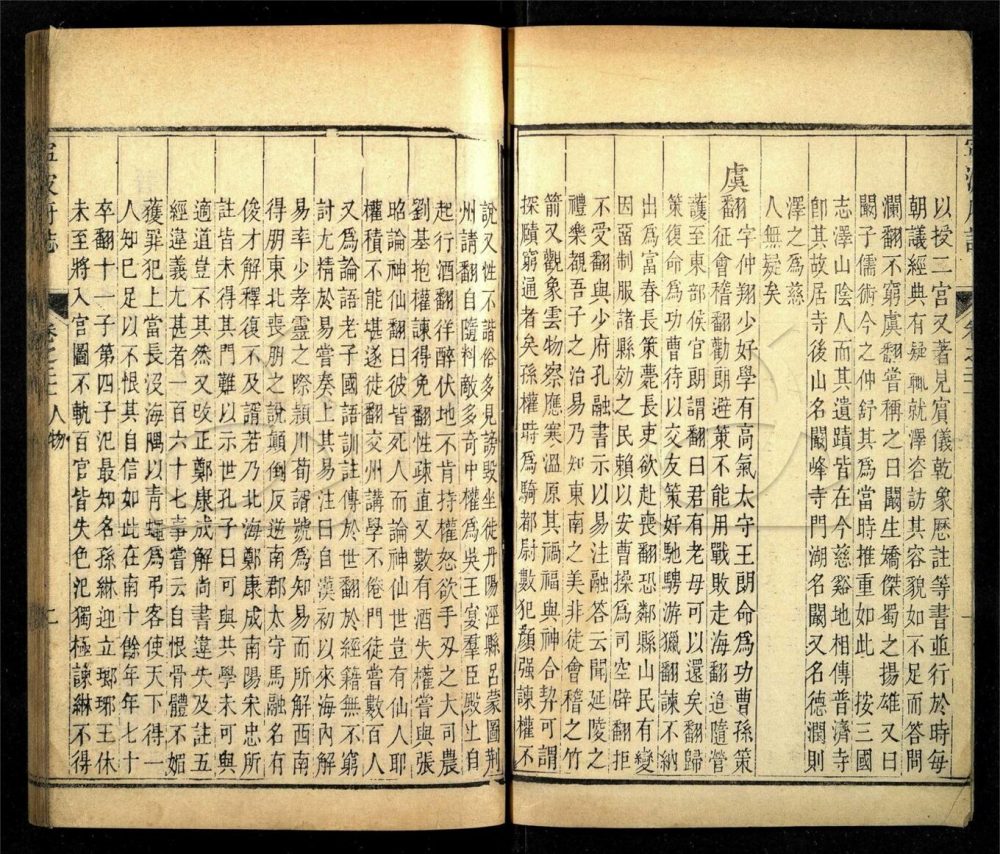 以授二宮又著見賓儀乾象歷註等書並行於時每
朝議經典有疑輒就澤容訪其容貌如不足而答問
瀾翻不窮虞翻嘗稱之曰闞生矯傑蜀之揚雄又曰
闞子儒術今之仲舒其為當時推重如此 按三國
志澤山陰人而其遺蹟皆在今慈谿地相傳普濟寺
卽其故居寺後山名闞峰寺門湖名闞又名德潤則
澤之為慈
人無疑矣
虞翻字仲翔少好學有高氣太守王朗命為功曹孫策
征會稽翻勸朗避策不能用戰敗走海翻追隨營
護至東部候官朗謂翻曰君有老母可以還矣翻歸
策復命為功曹待以交友策好馳騁游獵翻諫不納
出為富春長策薨長吏欲赴喪翻恐鄰縣山民有變
因畱制服諸縣効之民賴以安曹操為司空辟翻拒
不受翻與少府孔融書示以易注融答云聞延陵之
禮樂覩吾子之治易乃知東南之美非徒會稽之竹
箭又觀象雲物察應寒溫原其禍福與神合契可謂
探賾窮通者矣孫權時為騎都尉數犯顏强諫權不
說又性不諧俗多見謗毀坐徙丹陽涇縣呂蒙圖荆
州請翻自隨料敵多奇中權為吳王宴羣臣殿上自
起行酒翻徉醉伏地不肯持權怒欲手刃之大司農
劉基抱權諫得免翻性疎直又數有酒失權嘗與張
昭論神仙翻曰彼皆死人而論神仙世豈有仙人耶
權積不能甚遂徙翻交州講學不倦門徒嘗數百人
又為論語老子國語訓註傳於世翻於經籍無不窮
討尤精於易嘗奏上其易注曰自漢初以來海內解
易率少孝靈之際潁川荀諝號為知易而所解西南
得朋東北喪朋之說顛倒反逆南郡太守馬融名有
俊才解釋復不及諝若乃北海鄭康成南陽宋忠所
註皆未得其門難以示世孔子曰可與共學未可與
適道豈不其然又改正鄭康成解尚書違失及註五
經違義尤甚者一百六十七事嘗云自恨骨體不媚
獲罪犯上當長沒海隅以青蠅為弔客使天下得一
人知巳足以不恨其自信如此在南十餘年年七十
卒翻十一子第四子汜最知名孫綝迎立瑯琊王休
未至將入宮圖不軌百官皆失色汜獨極諫綝不得
卷之二十 人物